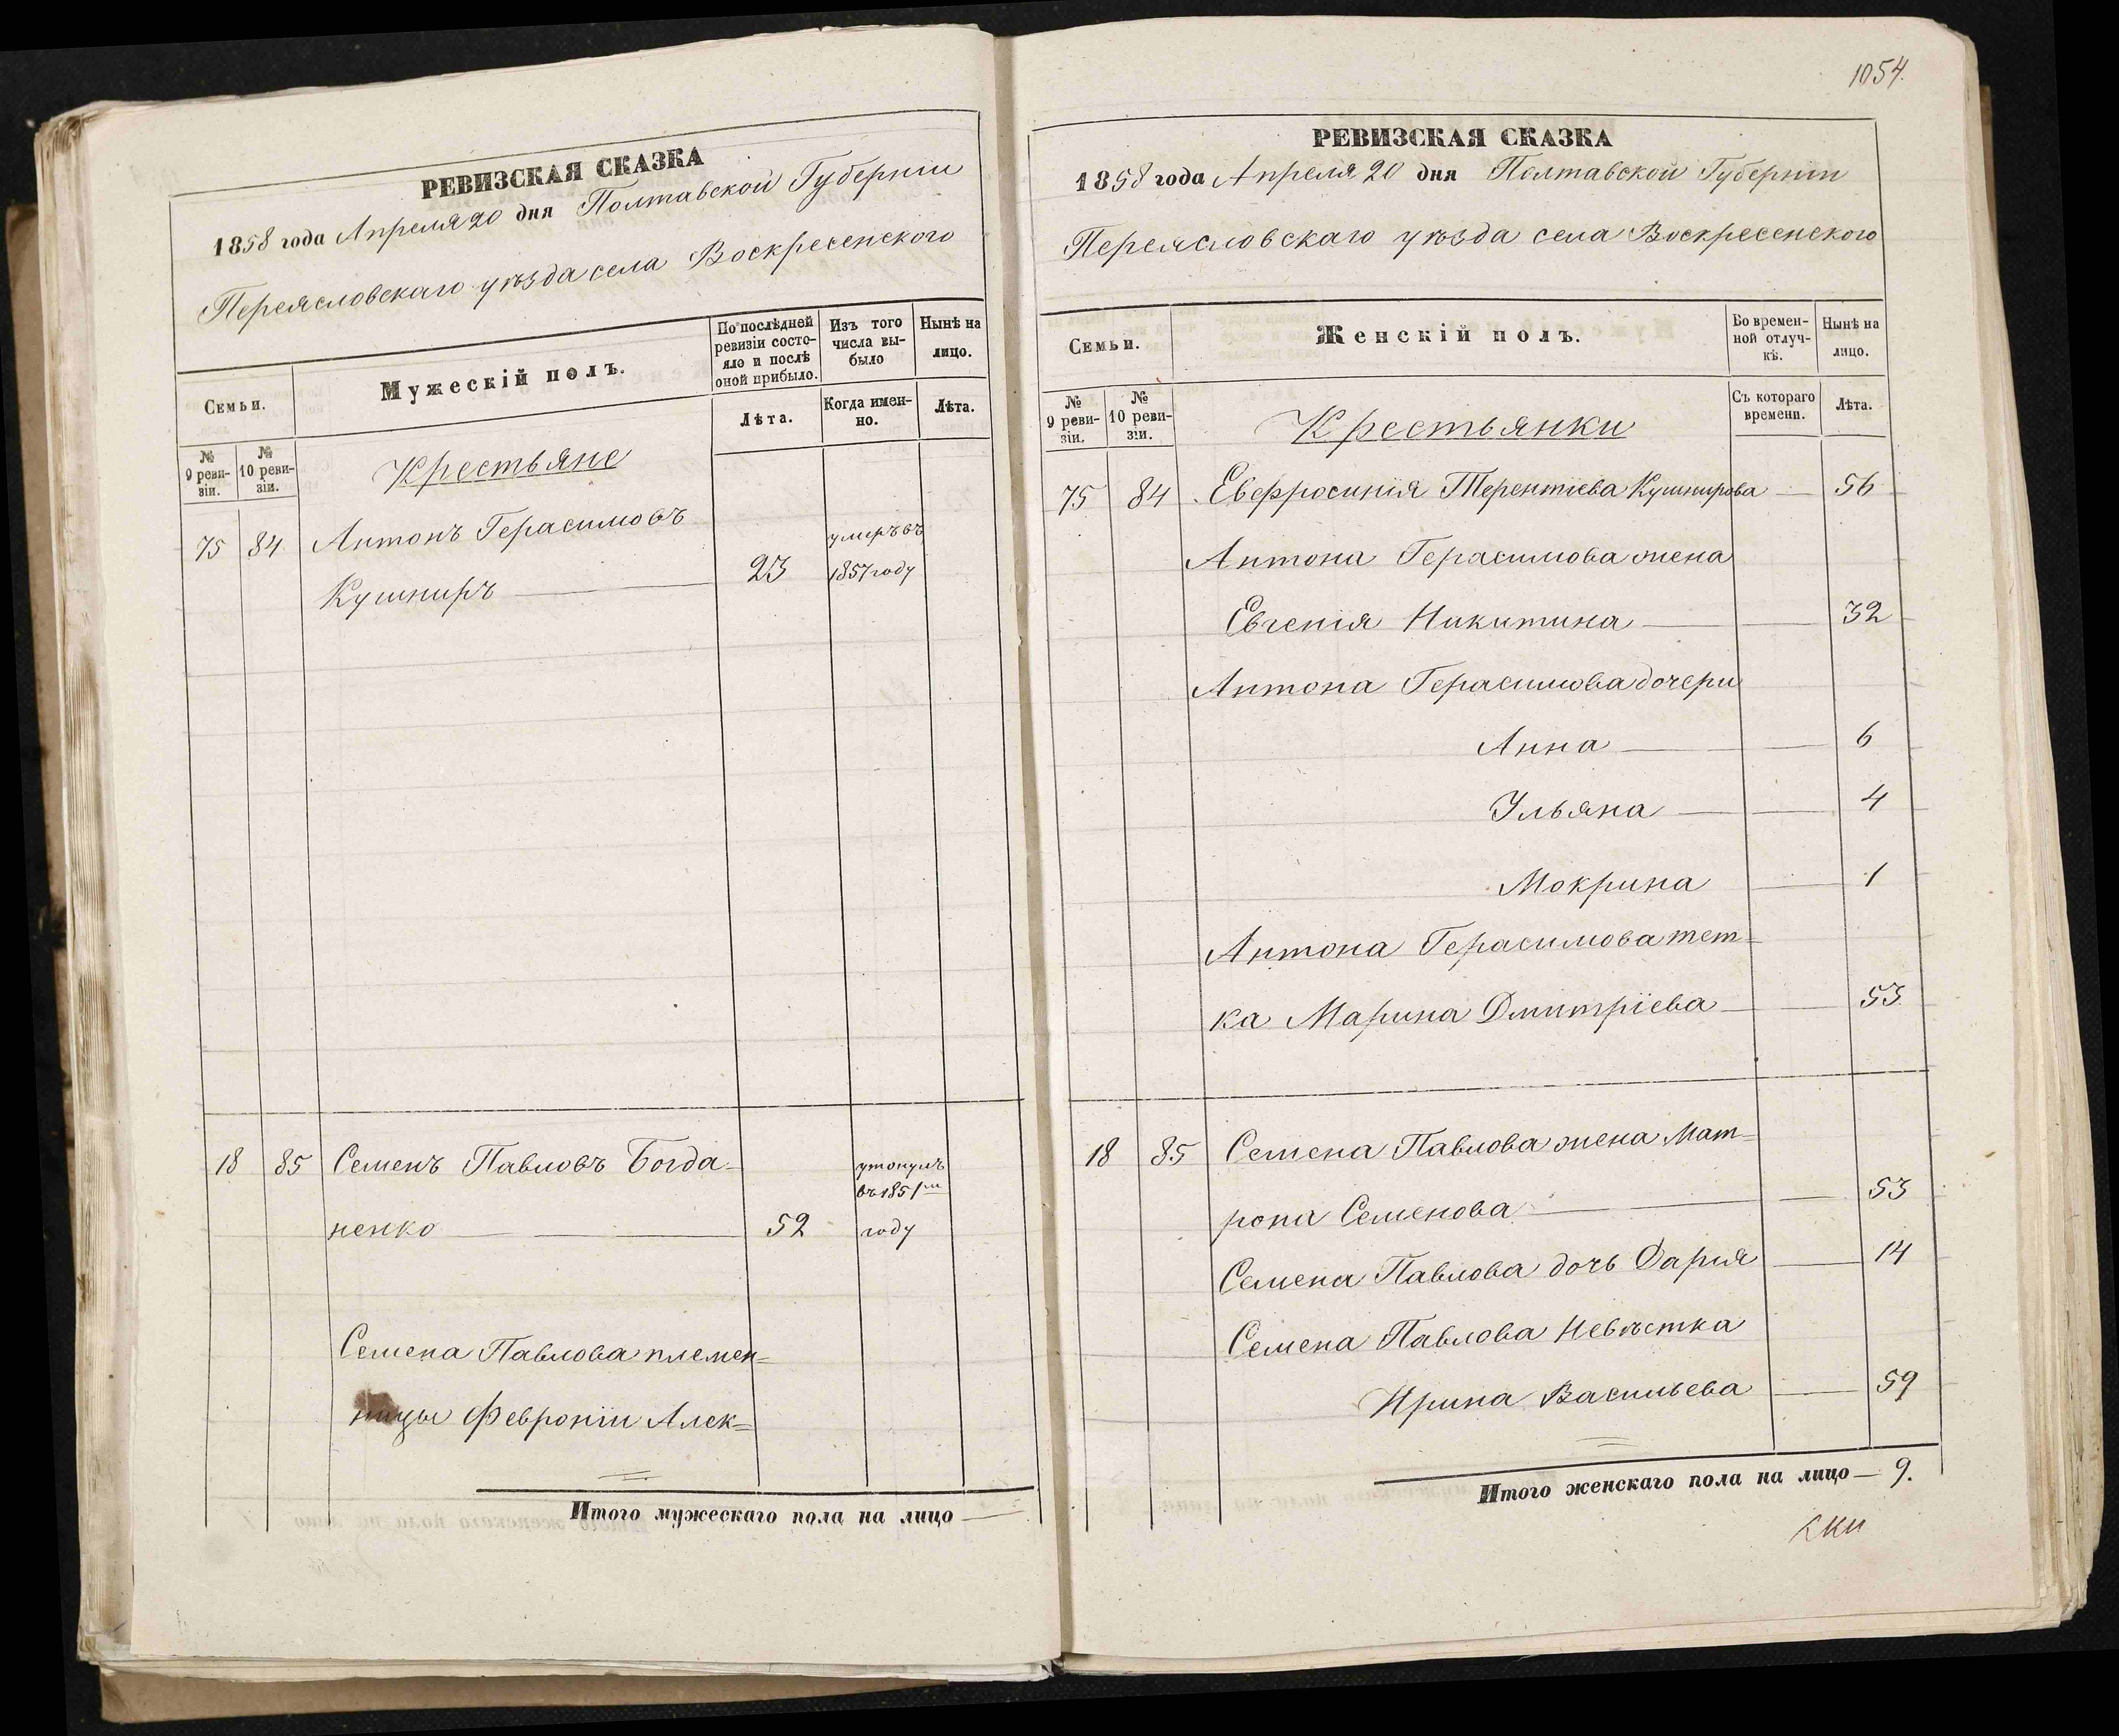 РЕВИЗСКАЯ СКАЗКА
1858 года Апреля 20 дня Полтавской Губерніи
Переясловскаго уѣзда села Воскресенского
Семьи.
Мужескій полъ.
По послѣдней ревизіи состояло и послѣ оной прибыло.
Изъ того числа выбыло
Нынѣ на лицо.
№ 9 ревизіи.
№ 10 ревизіи.
Лѣта.
Когда именно.
Лѣта.
Крестьяне
75 84 Антонъ Герасимовъ умеръ въ
Кушниръ 23 1857 году
18 85 Семенъ Павловъ Богда- утонулъ
въ 1851
ненко 52 году
Семена Павлова племен=
ницы Февроніи Алек=
Итого мужескаго пола на лицо —
1054.
РЕВИЗСКАЯ СКАЗКА
1858 года Апреля 20 дня Полтавской Губерніи
Переясловскаго уѣзда села Воскресенского
Семьи.
Женскій полъ.
Во временной отлучкѣ.
Нынѣ на лицо.
№ 9 ревизіи.
№ 10 ревизіи.
Съ котораго времени.
Лѣта.
Крестьянки
75 84 Евфросинія Терентіева Кушнирова — 56
Антона Герасимова жена
Евгенія Никитина — 32
Антона Герасимова дочери
Анна — 6
Ульяна — 4
Мокрина — 1
Антона Герасимова тет-
ка Марина Дмитріева — 53
18 85 Семена Павлова жена Мат=
рона Семенова — 53
Семена Павлова дочь Дарія — 14
Семена Павлова Невѣстка
Ирина Васильева — 59
Итого женскаго пола на лицо — 9.